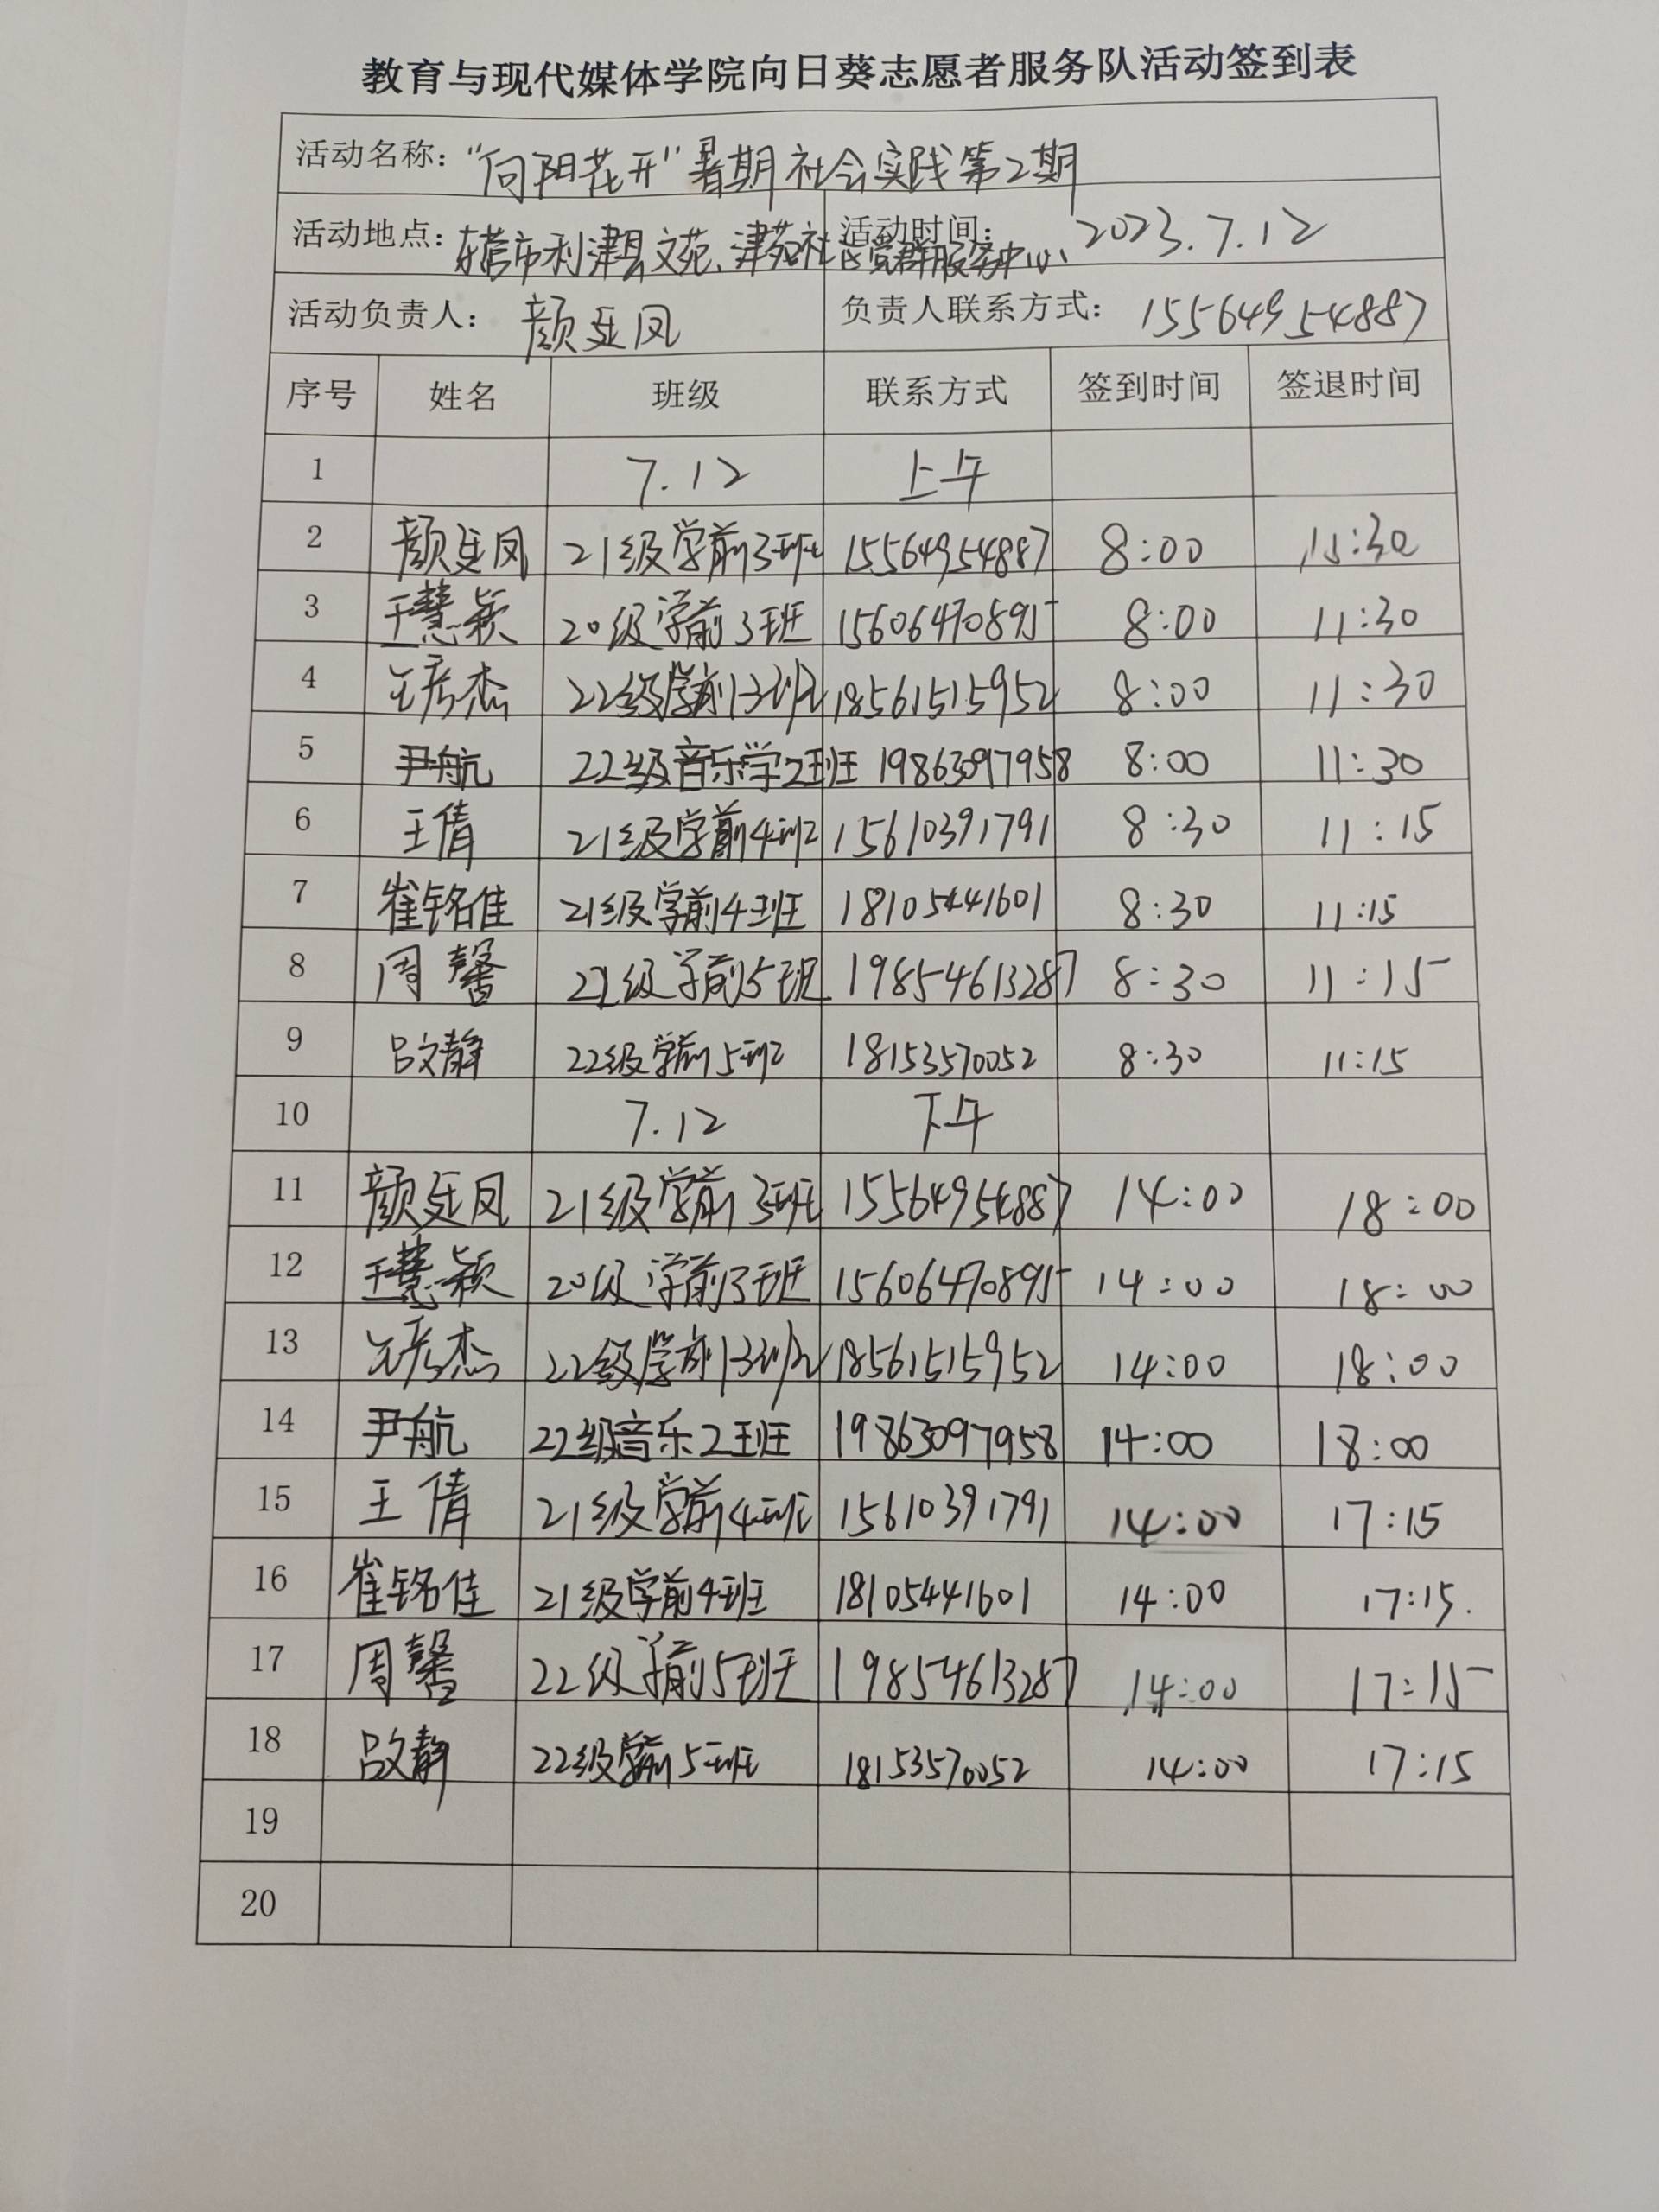 教育与现代媒体学院向日葵志愿者服务队活动签到表
活动名称：“向阳花开”暑期社会实践第2期
活动地点：东营市利津县文苑、津苑社区党群服务中心 活动时间：2023.7.12
活动负责人：颜廷凤 负责人联系方式：15564954887
序号 姓名 班级 联系方式 签到时间 签退时间
1 7.12 上午
2 颜廷凤 21级学前3班 15564954887 8:00 11:30
3 王慧颖 20级学前3班 15606470895 8:00 11:30
4 杰 22级学前13班 18561515952 8:00 11:30
5 尹航 22级音乐学2班 19863097958 8:00 11:30
6 王倩 21级学前4班 15610391791 8:30 11:15
7 崔铭佳 21级学前4班 18105441601 8:30 11:15
8 周馨 22级学前5班 19854613287 8:30 11:15
9 吕文静 22级学前5班 18153570052 8:30 11:15
10 7.12 下午
11 颜廷凤 21级学前3班 15564954887 14:00 18:00
12 王慧颖 20级学前3班 15606470895 14:00 18:00
13 杰 22级学前13班 18561515952 14:00 18:00
14 尹航 22级音乐2班 19863097958 14:00 18:00
15 王倩 21级学前4班 15610391791 14:00 17:15
16 崔铭佳 21级学前4班 18105441601 14:00 17:15.
17 周馨 22级学前5班 19854613287 14:00 17:15
18 吕文静 22级学前5班 18153570052 14:00 17:15
19
20